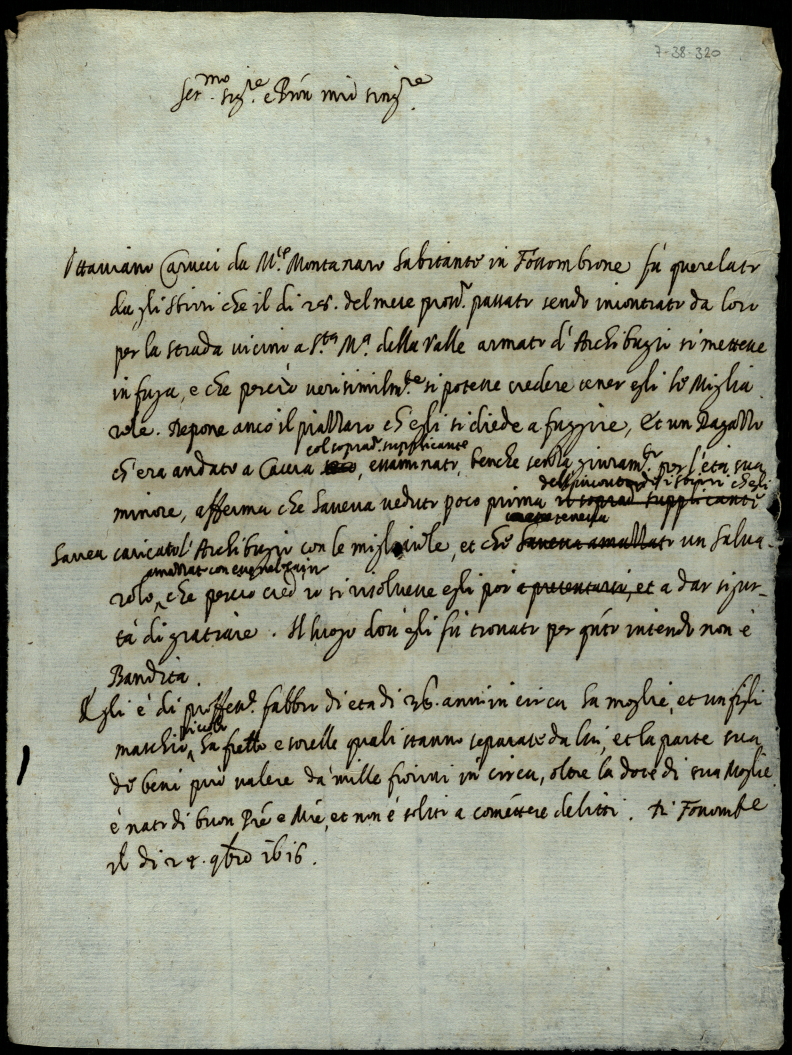 7-38-320
Ser.mo sig.re e Prōn mio sing.re
Ottaviano Carucci da M.te Montanaro habitante in Fossombrone fù querelato
da gli sbirri che il dì 28. del mese pross.o passato sendo incontrato da loro
per la strada vicino a S.ta M.a della Valle armato d'Archibugio si mettesse
in fuga, e che perciò verisimilm.te si potesse credere tener egli le Miglia
role. Depone anco il piazzaro ch'egli si diede a fuggire, et un Ragazzo
col soprad.o supplicante
ch'era andato a Caccia, essaminato, benche senza giuram.to per l'età sua
dell'incontro de i sbirri ch'egli
minore, afferma che haveva veduto poco prima il soprad.o supplicante
teneva
havea caricato l'Archibugio con le migliarole, et che haveva amazzato un Salva-
amazzato con esse nel
rolo, che perciò si risolvesse egli poi a presentarsi, et a dar sigur-
tà di gratiare. Il luogo dov'egli fù trovato per q.nto intendo non è
Bandita.
Egli è di profess.e fabbro di età di 36. anni in circa ha moglie, et un figli
piccolo
maschio, ha fr̄ello e sorelle quali stanno separate da lui, et la parte sua
de beni può valere da mille fiorini in circa, oltre la dote di sua Moglie
è nato di buon Pr̄e e Mr̄e, et non è solito a cōmettere delitti. Di Fossomb.e
il dì 28. 9bro 1616.